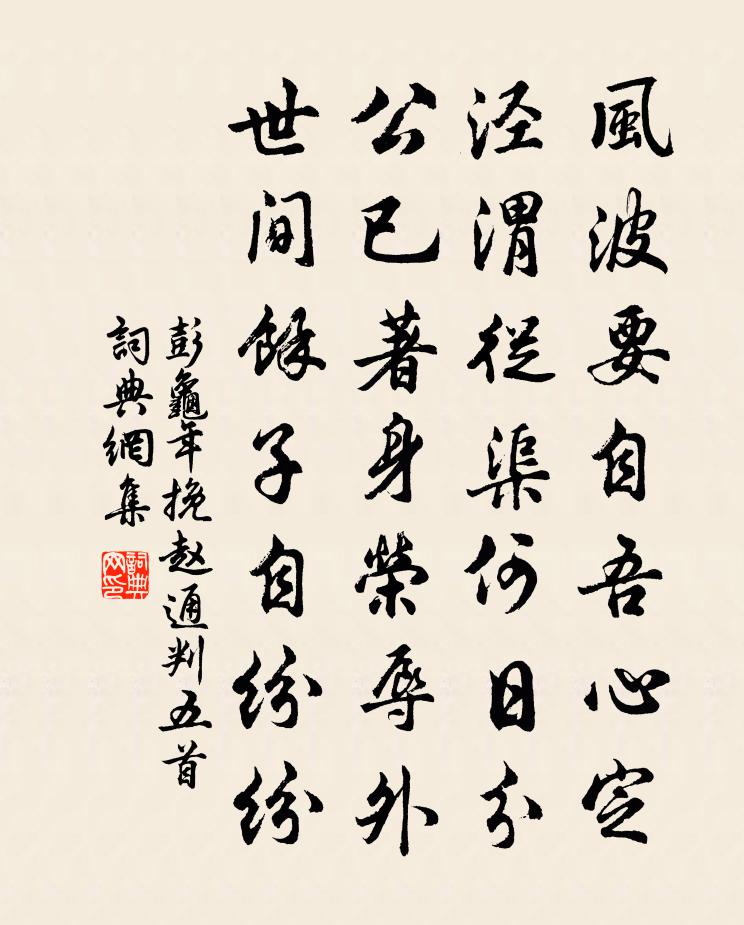 風波要自吾心定
泾渭從渠何日分
公已著身榮辱外
世间餘子自紛紛
彭龜年挽赵通判五首
詞典網集
詞典网印